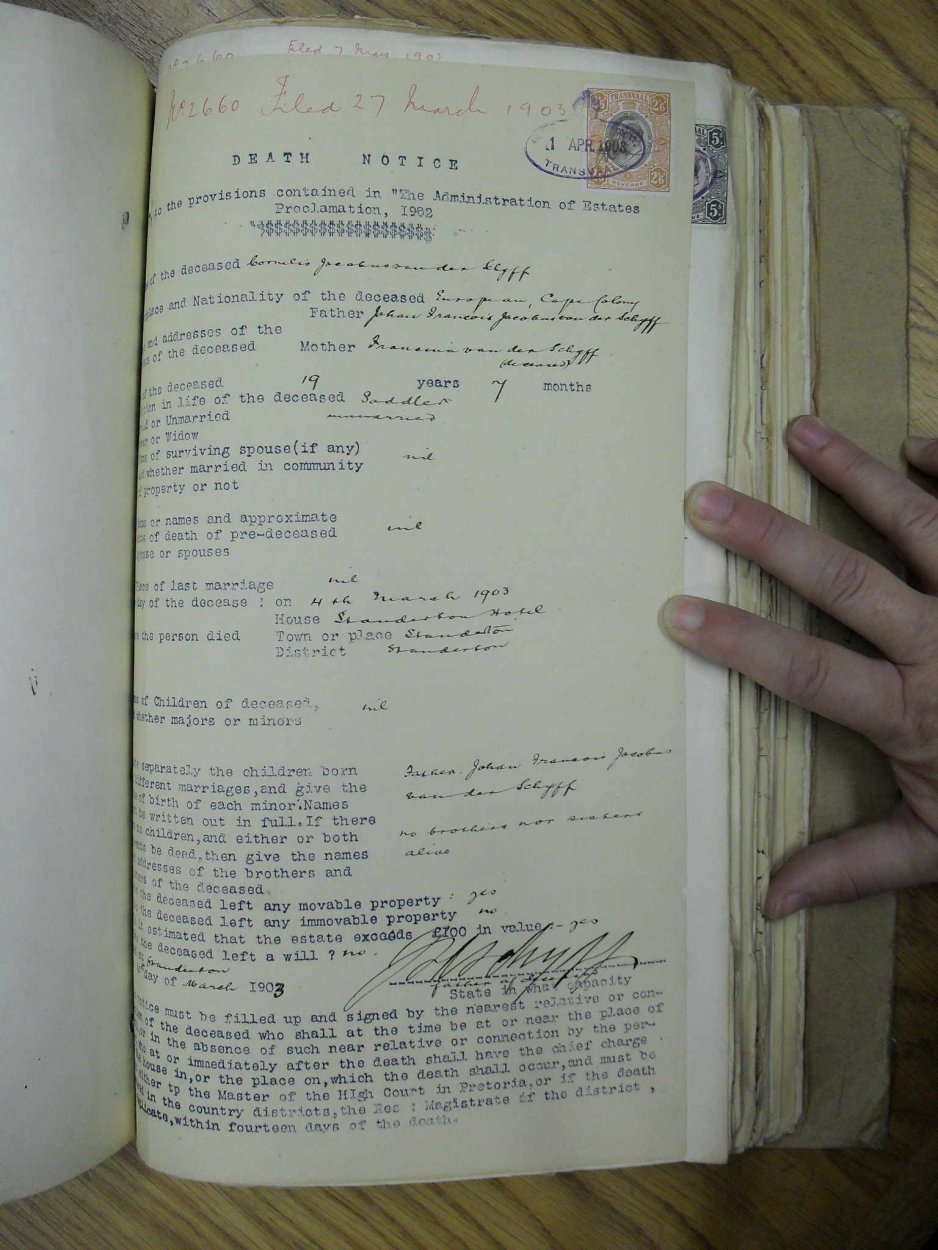 Filed 7 May 190
No 2660. Filed 27 March 1903
TRANSVAAL
2/6
1 APR 1903
TRANSVAAL
REVENUE
2/6
5/-
5/-
DEATH NOTICE
to the provisions contained in "The Administration of Estates
Proclamation, 1902
"$$$$$$$$$$$$$$$$$$
of the deceased Cornelis Jacobus van der Schyff
place and Nationality of the deceased European, Cape Colony
Father Johan Francois Jacobus van der Schyff
and addresses of the
of the deceased Mother Fransina van der Schyff
(deceased)
of the deceased 19 years 7 months
in life of the deceased Saddler
or Unmarried unmarried
or Widow
of surviving spouse(if any) nil
whether married in community
property or not
or names and approximate
of death of pre-deceased nil
or spouses
Place of last marriage nil
day of the decease : on 4th March 1903
House Standerton Hotel
the person died Town or place Standerton
District Standerton
of Children of deceased, nil
whether majors or minors
separately the children born Father. Johan Francois Jacobus
different marriages,and give the van der Schyff
of birth of each minor.Names
be written out in full.If there no brothers nor sisters
no children,and either or both alive
be dead,then give the names
addresses of the brothers and
of the deceased
the deceased left any movable property : yes
the deceased left any immovable property no.
estimated that the estate exceeds £100 in value - yes
the deceased left a will ? no.
Standerton
day of March 1903
Father of deceased
State in what capacity
notice must be filled up and signed by the nearest relative or con-
of the deceased who shall at the time be at or near the place of
or in the absence of such near relative or connection by the per-
at or immediately after the death shall have the chief charge
house in,or the place on,which the death shall occur,and must be
either tp the Master of the HIgh Court in Pretoria,or if the death
in the country districts,the Res : Magistrate of the district ,
duplicate,within fourteen days of the death.